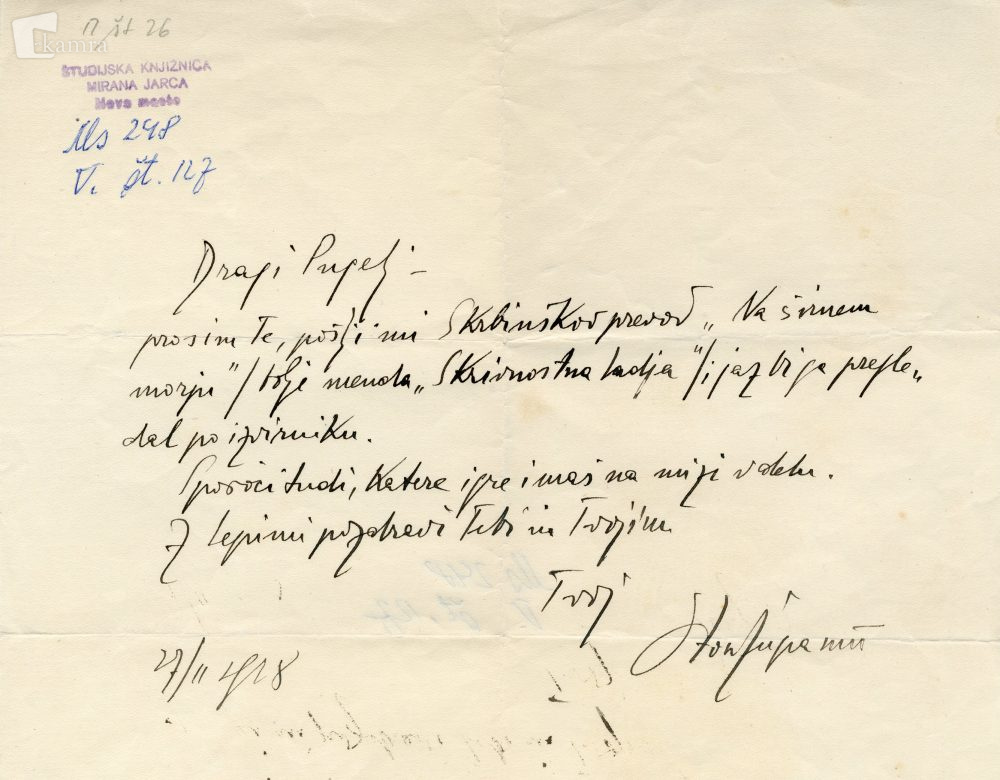 kamra
V št 26
ŠTUDIJSKA KNJIŽNICA
MIRANA JARCA
Novo mesto
Ms 248
V. št. 127
Dragi Pugelj –
prosim te, pošlji mi Skrbinškov prevod „Na širnem
morju" / to je menda „Skrivnostna ladja" /, jaz bi ga pregle„
dal po izvirniku.
Sporoči tudi, katere igre imaš na mizi v delu.
Z lepimi pozdravi Tebi in Tvojim
Tvoj
Oton Župančič
27/II 1928
Ms 248
V. št. 127